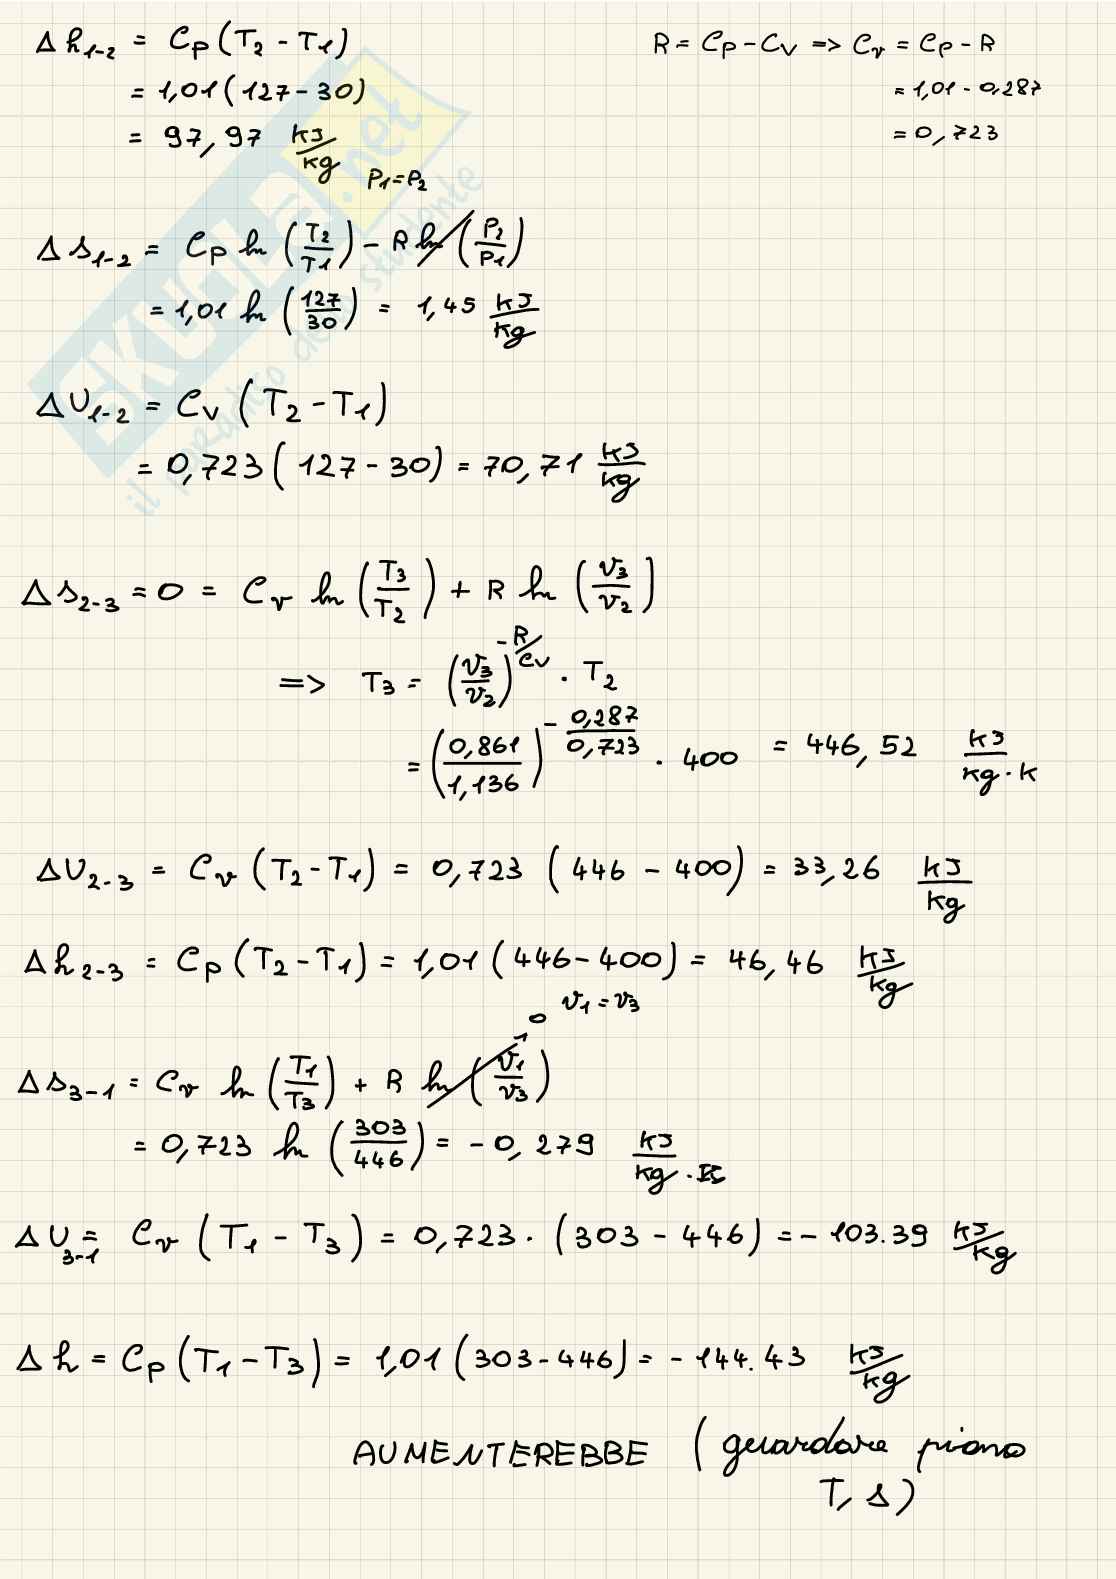 Δh₁₋₂ = Cp (T₂ - T₁)
= 1,01 (127 - 30)
= 97,97 kJ/kg
R = Cp - Cv => Cv = Cp - R
= 1,01 - 0,287
= 0,723
P₁ = P₂
Δs₁₋₂ = Cp ln (T₂/T₁) - R ln (P₂/P₁)
= 1,01 ln (127/30) = 1,45 kJ/kg
ΔU₁₋₂ = Cv (T₂ - T₁)
= 0,723 (127 - 30) = 70,71 kJ/kg
Δs₂₋₃ = 0 = Cv ln (T₃/T₂) + R ln (v₃/v₂)
=> T₃ = (v₃/v₂)^(-R/Cv) · T₂
= (0,861/1,136)^(-0,287/0,723) · 400 = 446,52 kJ/kg·K
ΔU₂₋₃ = Cv (T₂ - T₁) = 0,723 (446 - 400) = 33,26 kJ/kg
Δh₂₋₃ = Cp (T₂ - T₁) = 1,01 (446 - 400) = 46,46 kJ/kg
0 v₁ = v₃
Δs₃₋₁ = Cv ln (T₁/T₃) + R ln (v₁/v₃)
= 0,723 ln (303/446) = -0,279 kJ/kg·K
ΔU₃₋₁ = Cv (T₁ - T₃) = 0,723 · (303 - 446) = -103.39 kJ/kg
Δh = Cp (T₁ - T₃) = 1,01 (303 - 446) = -144.43 kJ/kg
AUMENTEREBBE (guardare piano
T, s)
SKUOLA.net
il paradiso dello studente